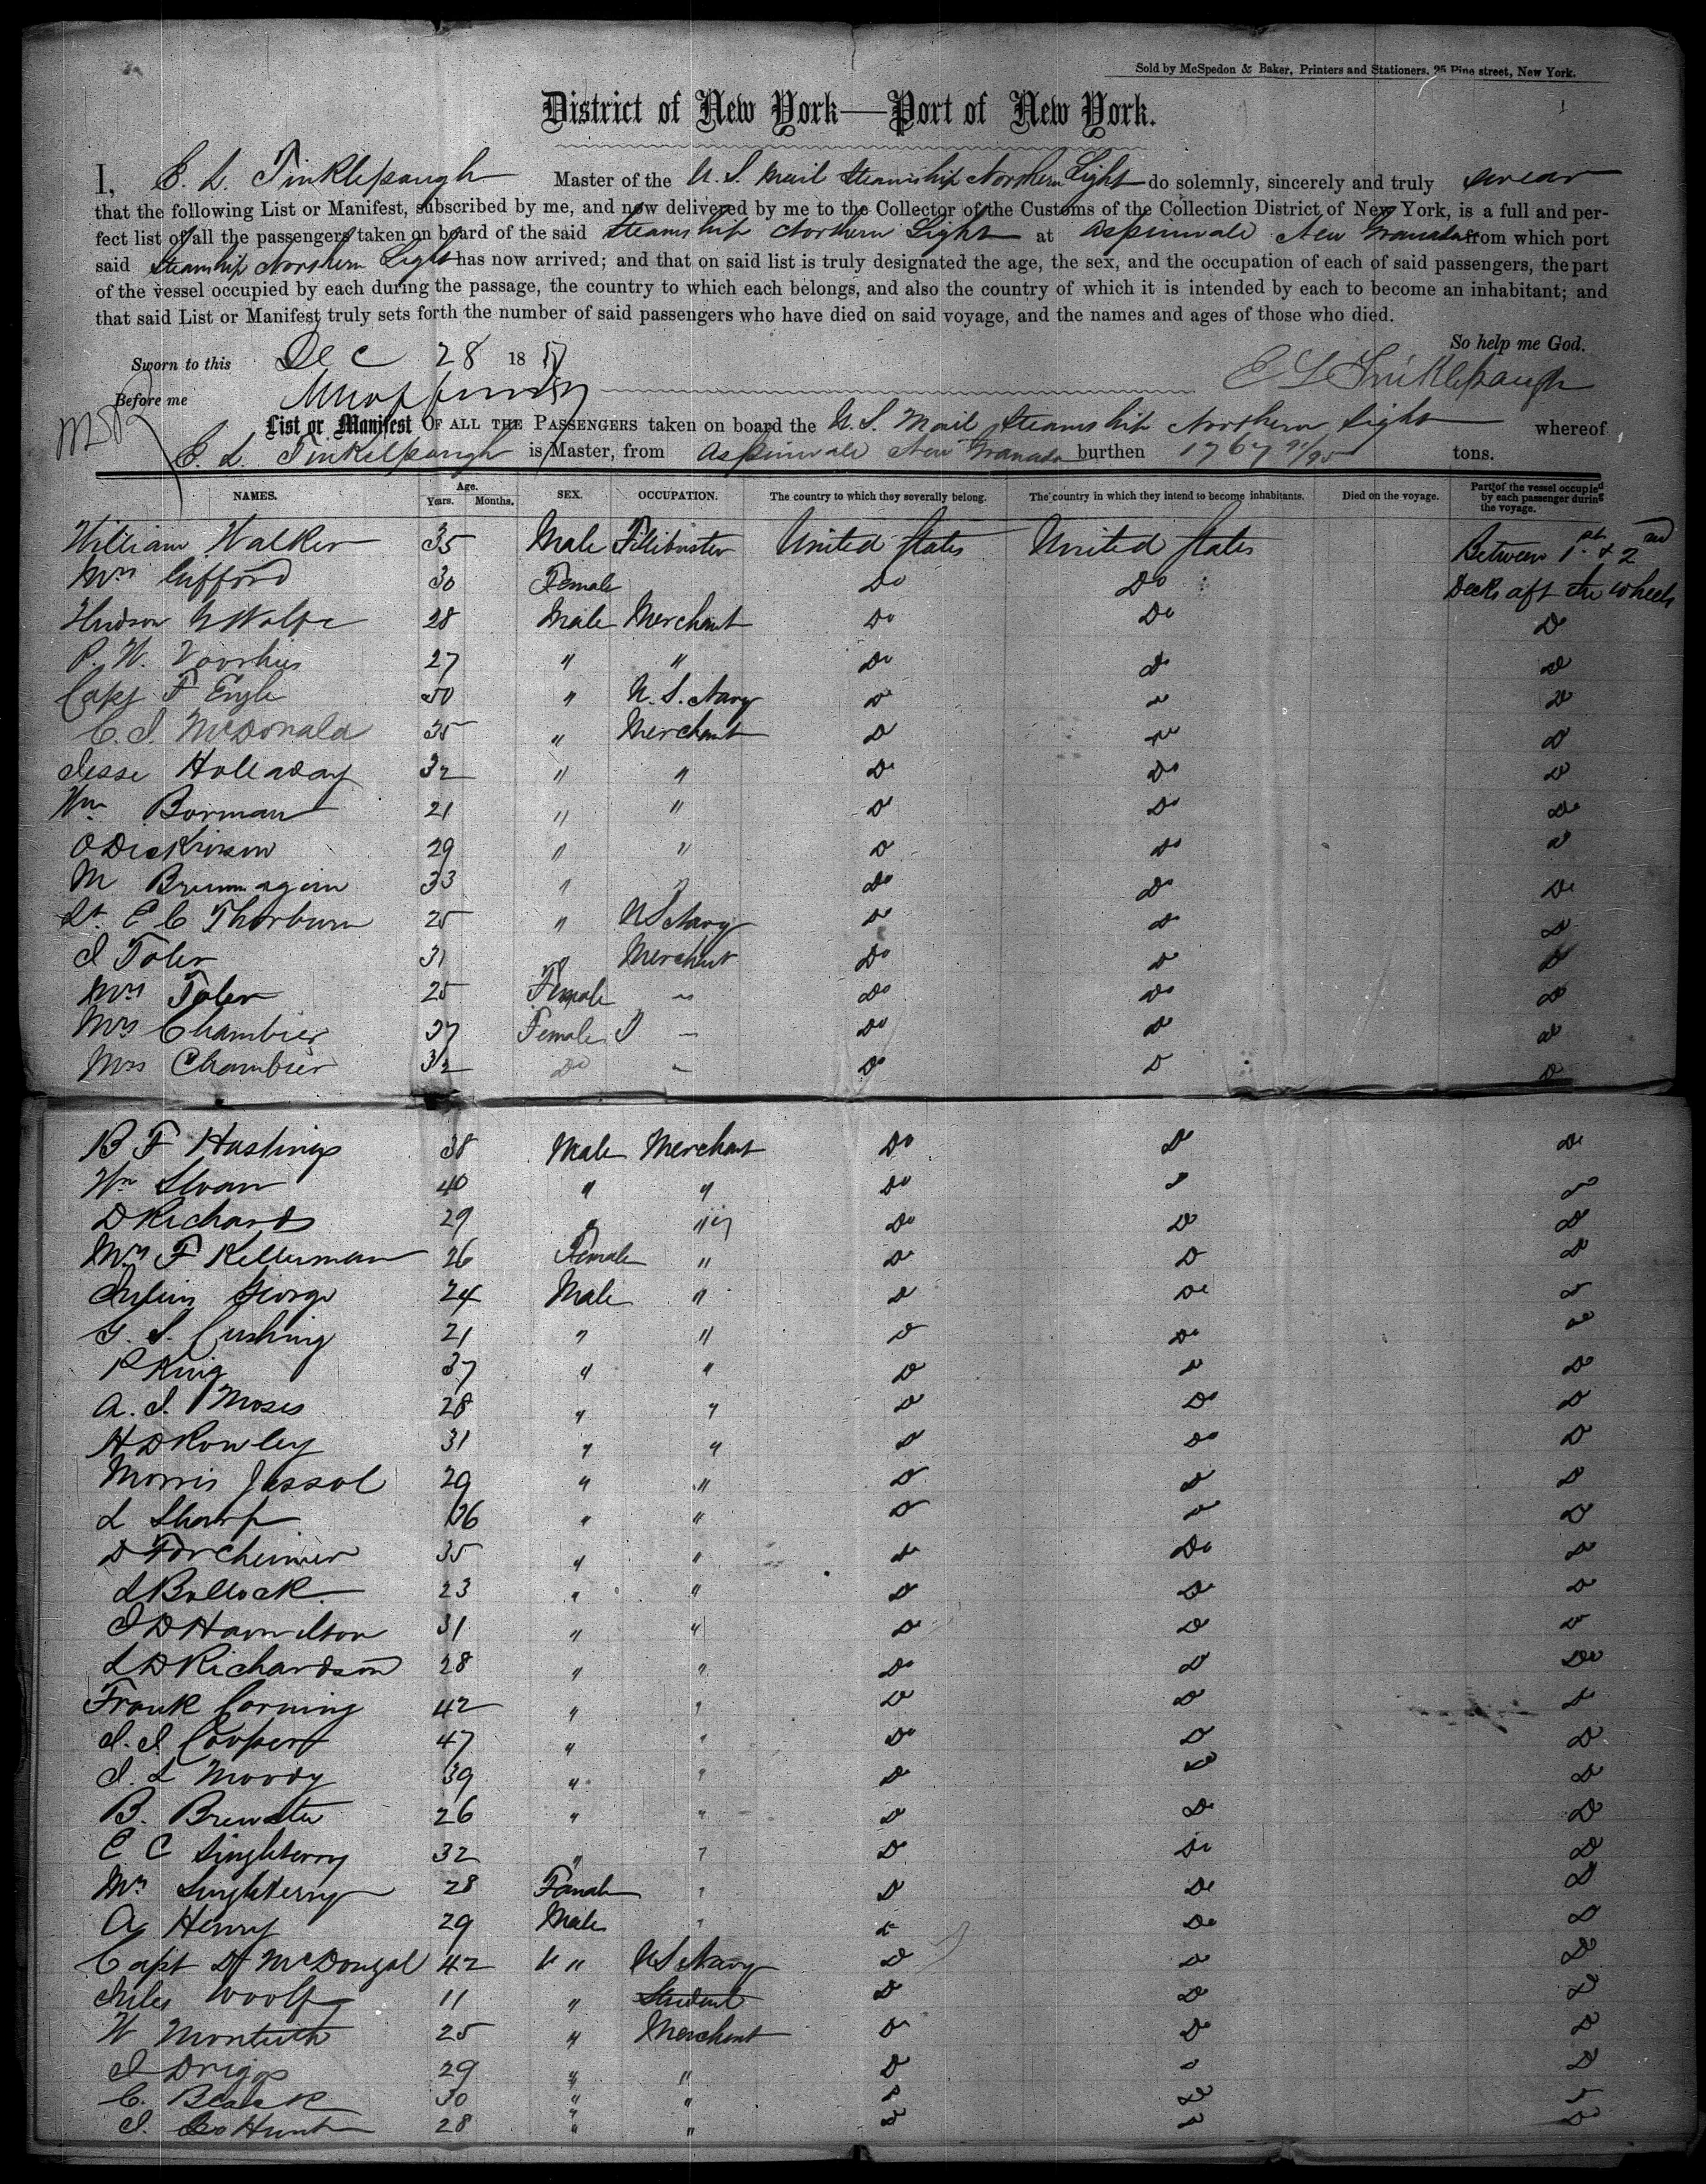 Sold by McSpedon & Baker, Printers and Stationers, 25 Pine street, New York.
District of New York—Port of New York.
I, E. L. Tinklepaugh Master of the U. S. Mail Steamship Northern Light do solemnly, sincerely and truly swear
that the following List or Manifest, subscribed by me, and now delivered by me to the Collector of the Customs of the Collection District of New York, is a full and per-
fect list of all the passengers taken on board of the said Steamship Northern Light at Aspinwale New Granada from which port
said Steamship Northern Light has now arrived; and that on said list is truly designated the age, the sex, and the occupation of each of said passengers, the part
of the vessel occupied by each during the passage, the country to which each belongs, and also the country of which it is intended by each to become an inhabitant; and
that said List or Manifest truly sets forth the number of said passengers who have died on said voyage, and the names and ages of those who died.
So help me God.
Sworn to this Dec 28 1857
E L Tinklepaugh
Before me
List or Manifest OF ALL THE PASSENGERS taken on board the U. S. Mail Steamship Northern Light whereof
E. L. Tinkelpaugh is Master, from Aspinwale New Granada burthen 1767 91/95 tons.
NAMES. Age. Years. Months. SEX. OCCUPATION. The country to which they severally belong. The country in which they intend to become inhabitants. Died on the voyage. Part of the vessel occupied by each passenger during the voyage.
William Walker 35 Male Fillibuster United States United States Between 1st & 2nd
Mrs Gifford 30 Female Do Do Decks aft the wheels
Hudson Wolfe 28 Male Merchant Do Do Do
P. W. Voorhies 27 " " Do Do Do
Capt F Engle 50 " U. S. Navy Do Do Do
C. J. McDonald 35 " Merchant Do Do Do
Jesse Holladay 32 " " Do Do Do
Wm Borman 21 " " Do Do Do
O Dickinson 29 " " Do Do Do
M Brummagim 33 " " Do Do Do
Lt E C Thorburn 25 " US Navy Do Do Do
J Toler 31 " Merchant Do Do Do
Mrs Toler 25 Female " Do Do Do
Mrs Chambier 27 Female Do Do Do
Mrs Chambier 32 Do " Do Do Do
B F Hastings 38 Male Merchant Do Do Do
Wm Sloan 40 " " Do Do Do
D Richards 29 " " Do Do Do
Mrs F Kellerman 26 Female " Do Do Do
Julius George 24 Male " Do Do Do
G. S. Cushing 21 " " Do Do Do
P King 37 " " Do Do Do
A. J. Moses 28 " " Do Do Do
H D Rowley 31 " " Do Do Do
Morris Jassol 29 " " Do Do Do
L Sharp 36 " " Do Do Do
D Forcheimer 35 " " Do Do Do
L Bullock 23 " " Do Do Do
J D Hamilton 31 " " Do Do Do
L D Richardson 28 " " Do Do Do
Frank Corning 42 " " Do Do Do
J. J. Cooper 47 " " Do Do Do
J. L Moody 39 " " Do Do Do
B. Brewster 26 " " Do Do Do
E C Singleterry 32 " " Do Do Do
Mrs Singleterry 28 Female " Do Do Do
A Henry 29 Male " Do Do Do
Capt D McDougal 42 " " US Navy Do Do Do
Jules Woolf 11 " Student Do Do Do
W Monteith 25 " Merchant Do Do Do
J Driggs 29 " " Do Do Do
C. Black 30 " " Do Do Do
J. Hunt 28 " " Do Do Do